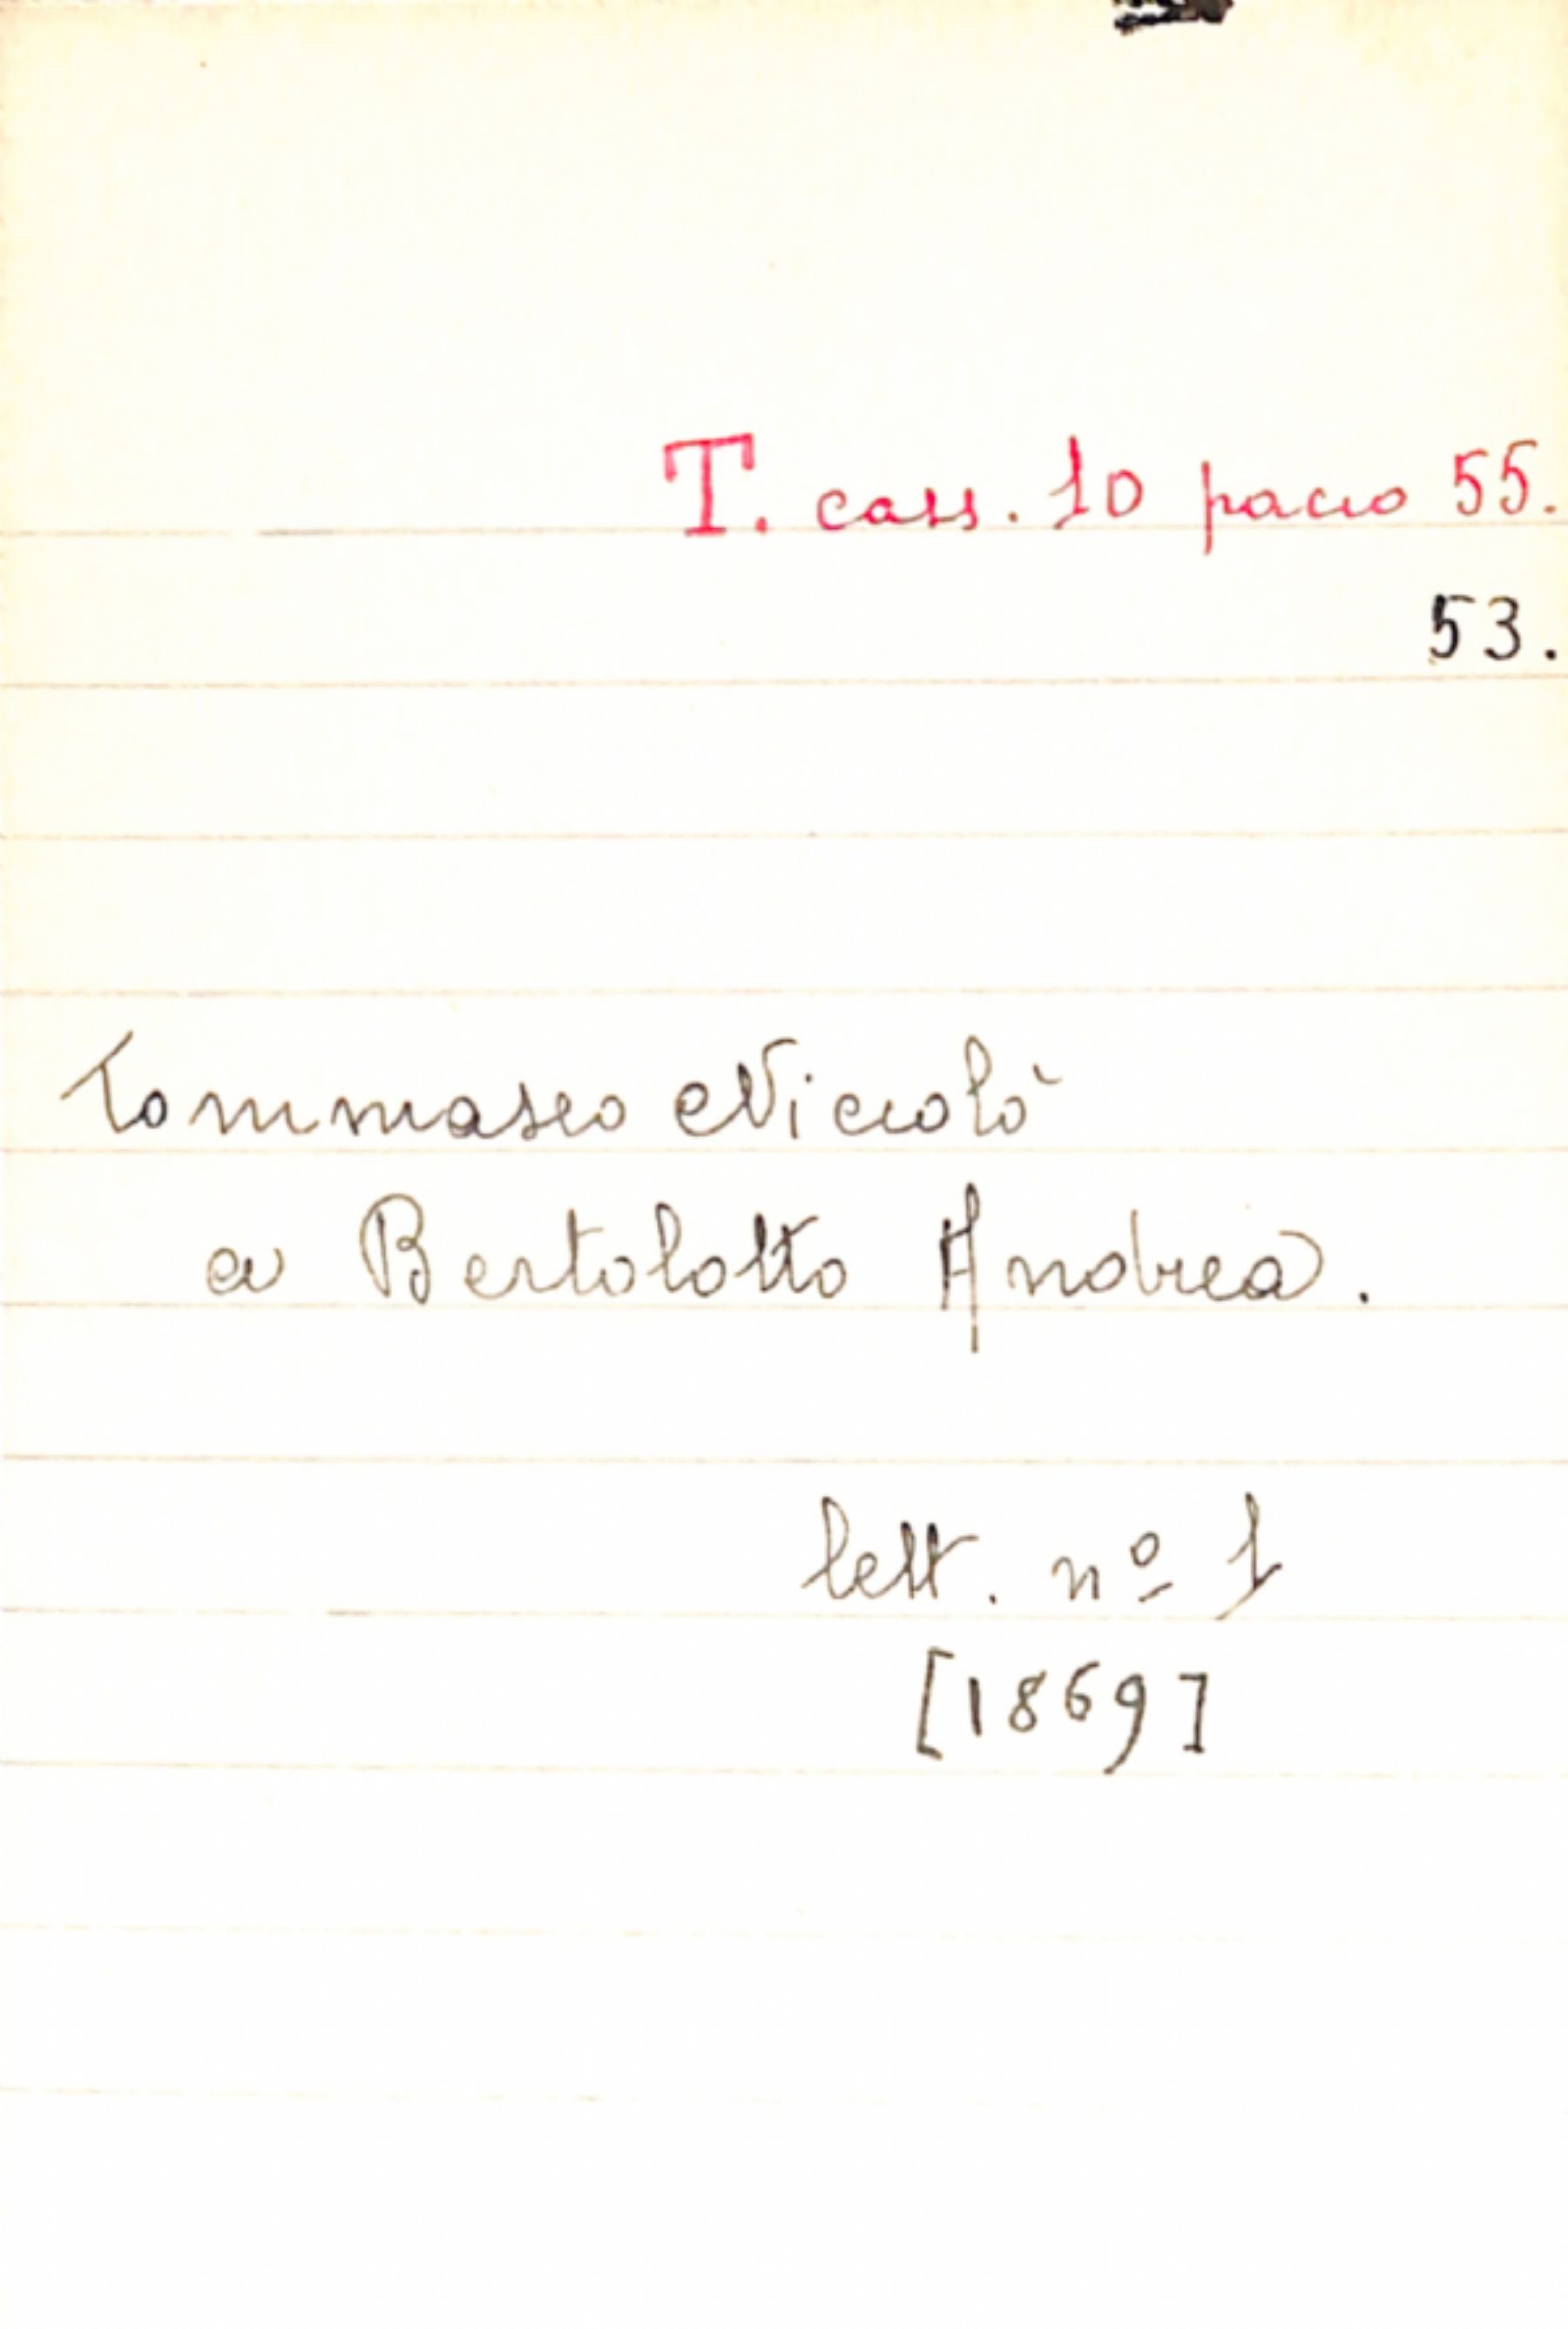 T. cass. 10 pacco 55.
53.
Tommaseo Niccolò
a Bertolotto Andrea.
lett. nº 1
[1869]